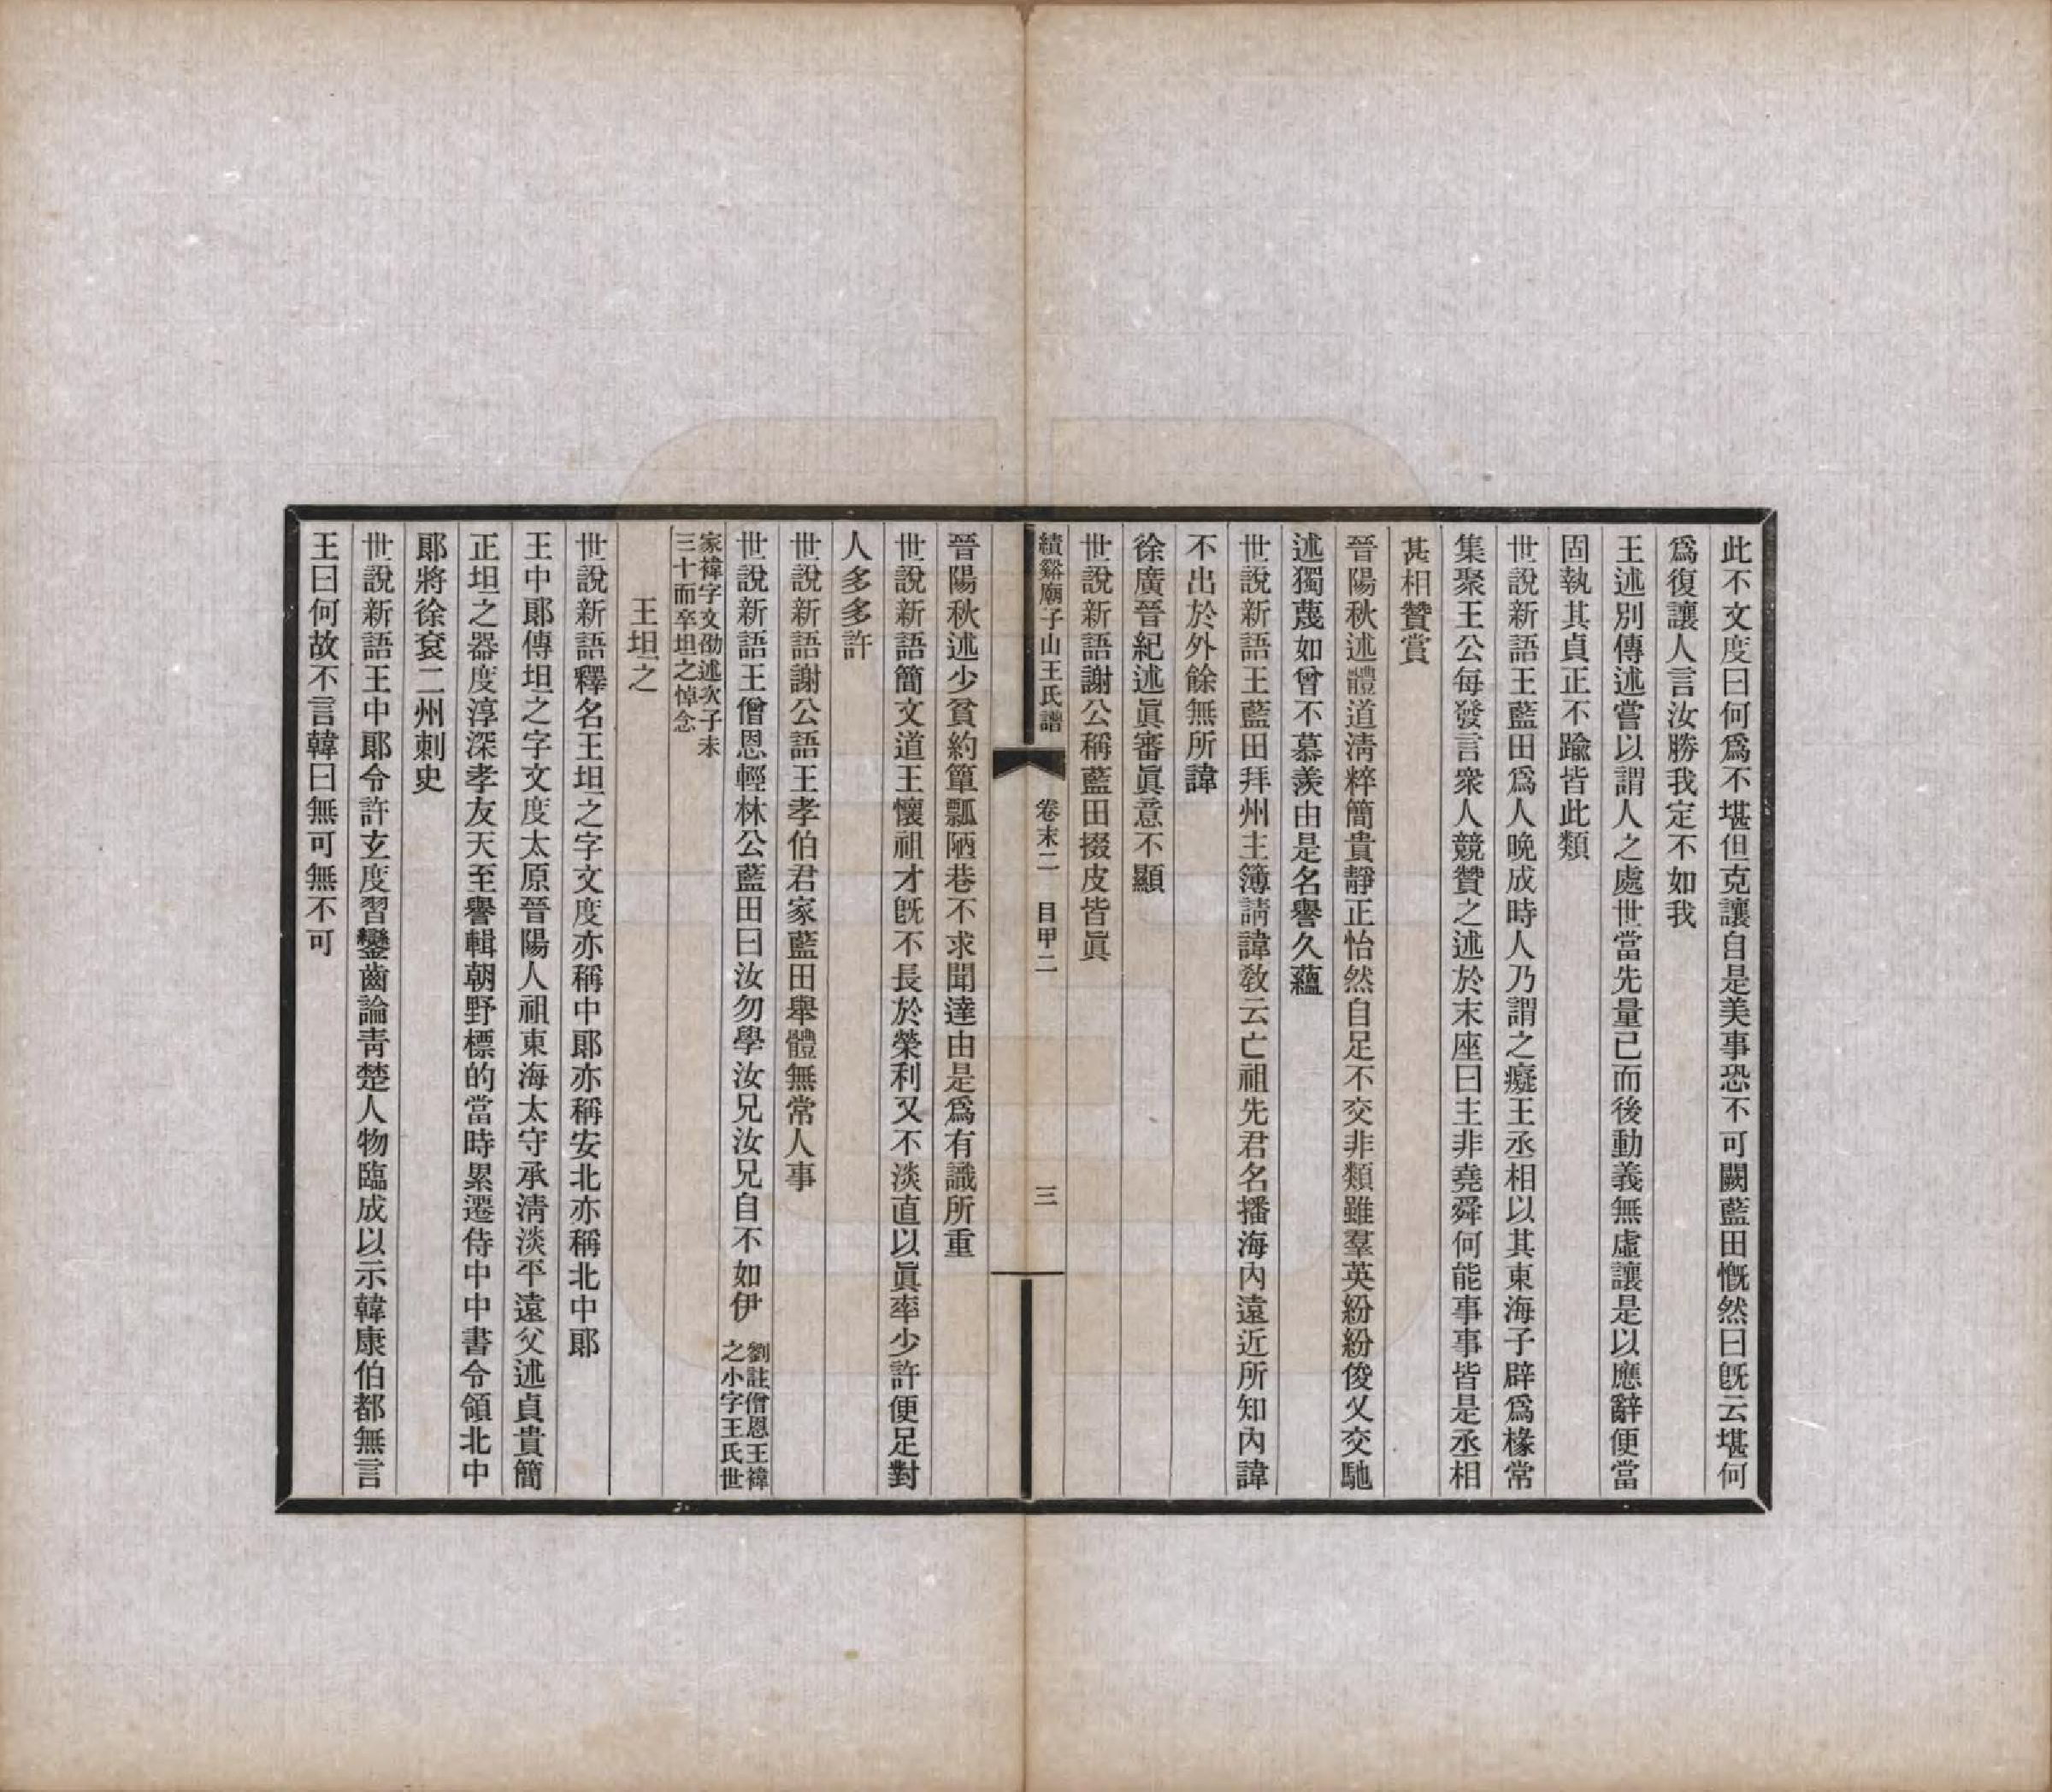 此不文度曰何爲不堪但克讓自是美事恐不可闕藍田慨然曰旣云堪何
爲復讓人言汝勝我定不如我
王述別傳述嘗以謂人之處世當先量已而後動義無虛讓是以應辭便當
固執其貞正不踰皆此類
世說新語王藍田爲人晚成時人乃謂之癡王丞相以其東海子辟爲椽常
集聚王公每發言衆人競贊之述於末座曰主非堯舜何能事事皆是丞相
甚相贊賞
晉陽秋述體道淸粹簡貴靜正怡然自足不交非類雖羣英紛紛俊乂交馳
述獨蔑如曾不慕羨由是名譽久蘊
世說新語王藍田拜州主簿請諱敎云亡祖先君名播海內遠近所知內諱
不出於外餘無所諱
徐廣晉紀述眞審眞意不顯
世說新語謝公稱藍田掇皮皆眞
績谿廟子山王氏譜
卷末二 目甲二
三
晉陽秋述少貧約簞瓢陋巷不求聞達由是爲有識所重
世說新語簡文道王懷祖才旣不長於榮利又不淡直以眞率少許便足對
人多多許
世說新語謝公語王孝伯君家藍田舉體無常人事
世說新語王僧恩輕林公藍田曰汝勿學汝兄汝兄自不如伊
劉註僧恩王褘
之小字王氏世
家褘字文劭述次子未
三十而卒坦之悼念
王坦之
世說新語釋名王坦之字文度亦稱中郞亦稱安北亦稱北中郞
王中郞傳坦之字文度太原晉陽人祖東海太守承淸淡平遠父述貞貴簡
正坦之器度淳深孝友天至譽輯朝野標的當時累遷侍中中書令領北中
郞將徐兗二州刺史
世說新語王中郞令許玄度習鑿齒論靑楚人物臨成以示韓康伯都無言
王曰何故不言韓曰無可無不可